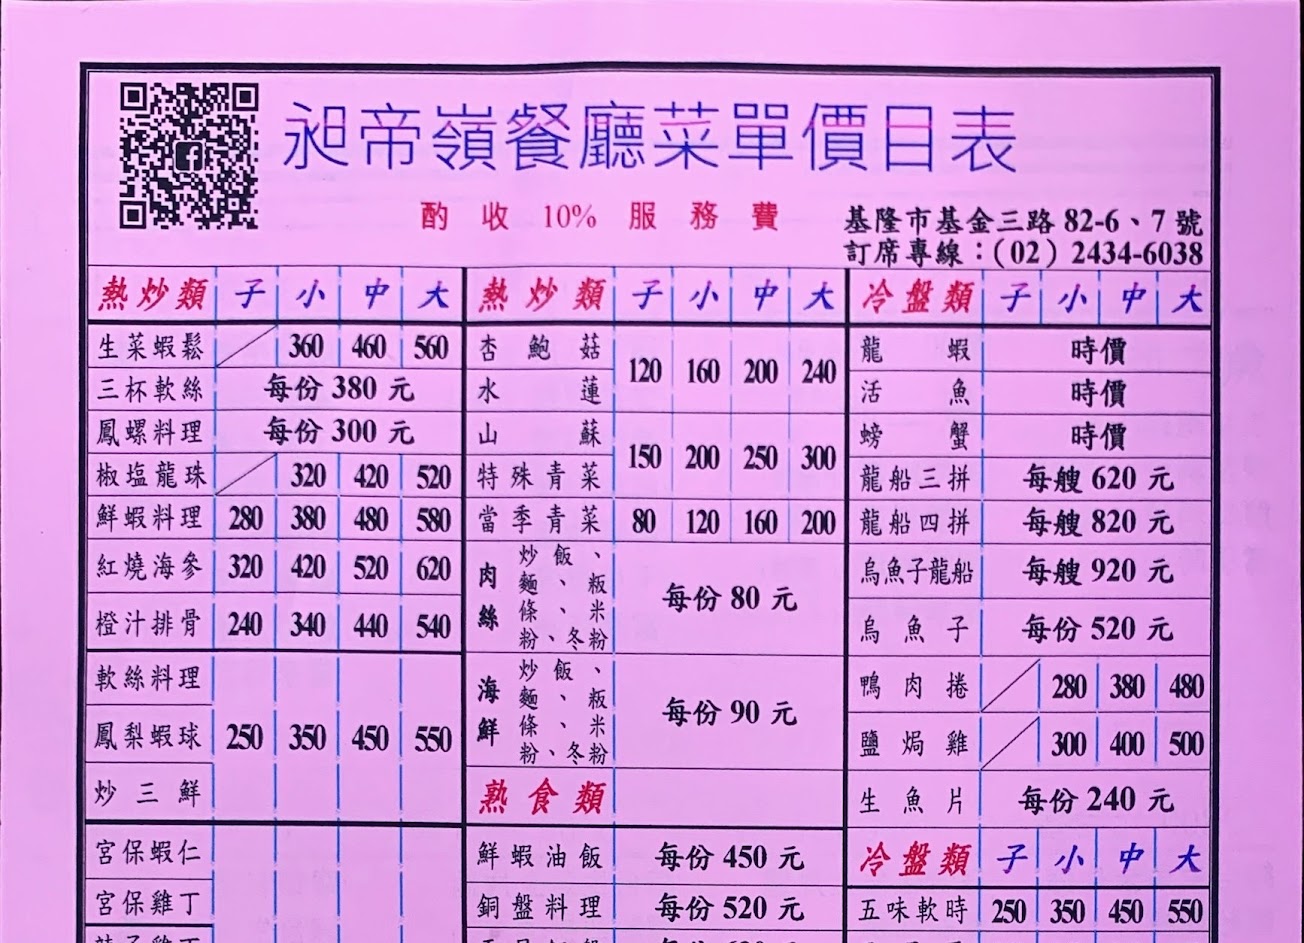 昶帝嶺餐廳菜單價目表
酌收 10% 服務費
基隆市基金三路 82-6、7 號
訂席專線：(02) 2434-6038
熱炒類 子 小 中 大
生菜蝦鬆 360 460 560
三杯軟絲 每份 380 元
鳳螺料理 每份 300 元
椒塩龍珠 320 420 520
鮮蝦料理 280 380 480 580
紅燒海參 320 420 520 620
橙汁排骨 240 340 440 540
軟絲料理
鳳梨蝦球 250 350 450 550
炒三鮮
宮保蝦仁
宮保雞丁
熱炒類 子 小 中 大
杏鮑菇
120 160 200 240
水蓮
山蘇
150 200 250 300
特殊青菜
當季青菜 80 120 160 200
肉絲 炒飯、
麵、粄
條、米
粉、冬粉
每份 80 元
海鮮 炒飯、
麵、粄
條、米
粉、冬粉
每份 90 元
熟食類
鮮蝦油飯 每份 450 元
銅盤料理 每份 520 元
冷盤類 子 小 中 大
龍蝦 時價
活魚 時價
螃蟹 時價
龍船三拼 每艘 620 元
龍船四拼 每艘 820 元
烏魚子龍船 每艘 920 元
烏魚子 每份 520 元
鴨肉捲 280 380 480
鹽焗雞 300 400 500
生魚片 每份 240 元
冷盤類 子 小 中 大
五味軟時 250 350 450 550